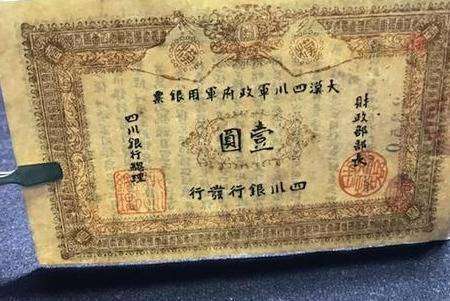 大漢四川軍政府軍用銀票
財政部部長
壹圓
四川銀行總理
四川銀行發行